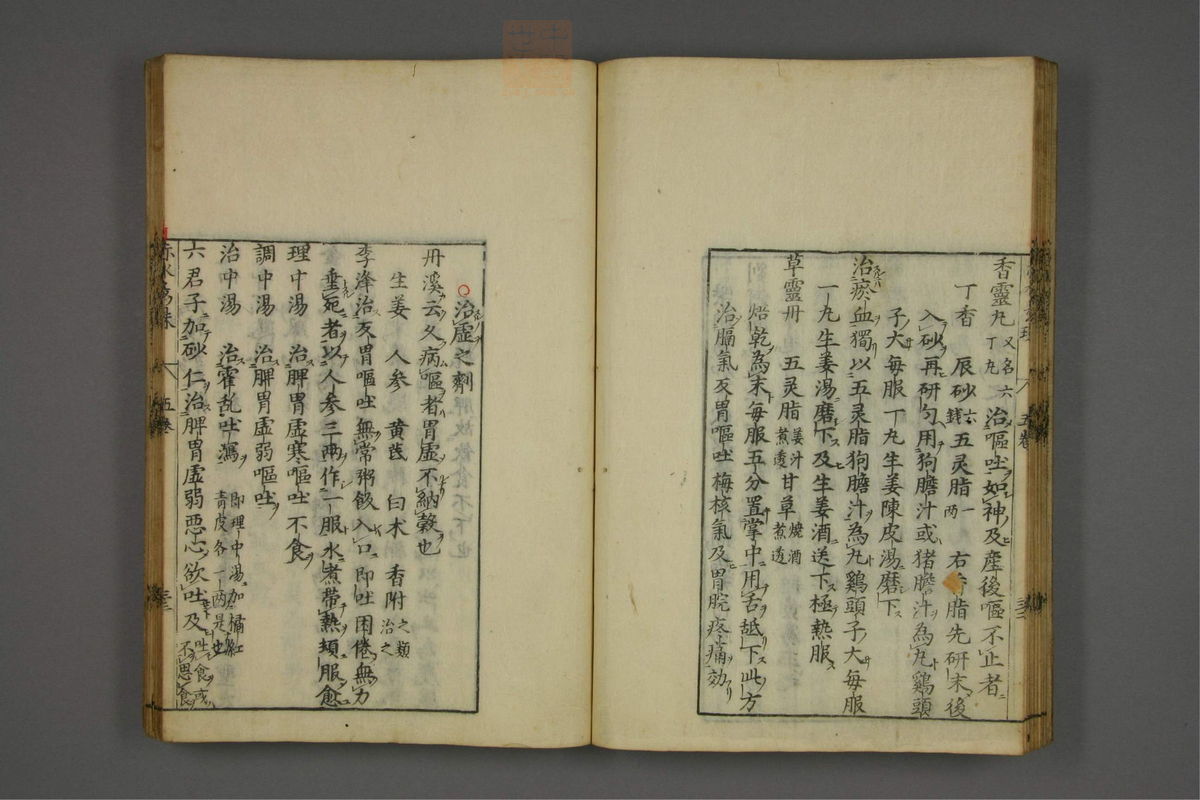 香靈丸又名六丁丸 治嘔吐如神及産後嘔不止者
丁香 辰砂六錢 五灵脂一兩 右 脂先研末後
入砂再研匀用狗膽汁或猪膽汁為丸鷄頭
子大每服丁丸生姜陳皮湯磨下
治瘀血獨以五灵脂狗膽汁為丸鷄頭子大每服
一丸生姜湯磨下及生姜酒送下極熱服
草靈丹 五灵脂姜汁煮透 甘草燒酒煮透
焙乾為末每服五分置掌中用舌舐下此方
治膈氣反胃嘔吐梅核氣及胃脘疼痛効
治虛之劑
丹溪云久病嘔者胃虛不納穀也
生姜 人參 黄芪 白术 香附之類治之
李絳治反胃嘔吐無常粥飲入口即吐困倦無力
垂死者以人參三兩作一服水煮帶熱頓服愈
理中湯 治脾胃虛寒嘔吐不食
調中湯 治脾胃虛弱嘔吐
治中湯 治霍乱吐瀉即理中湯加橘紅青皮各一兩是也
六君子加砂仁治脾胃虛弱惡心欲吐及吐食或不思食